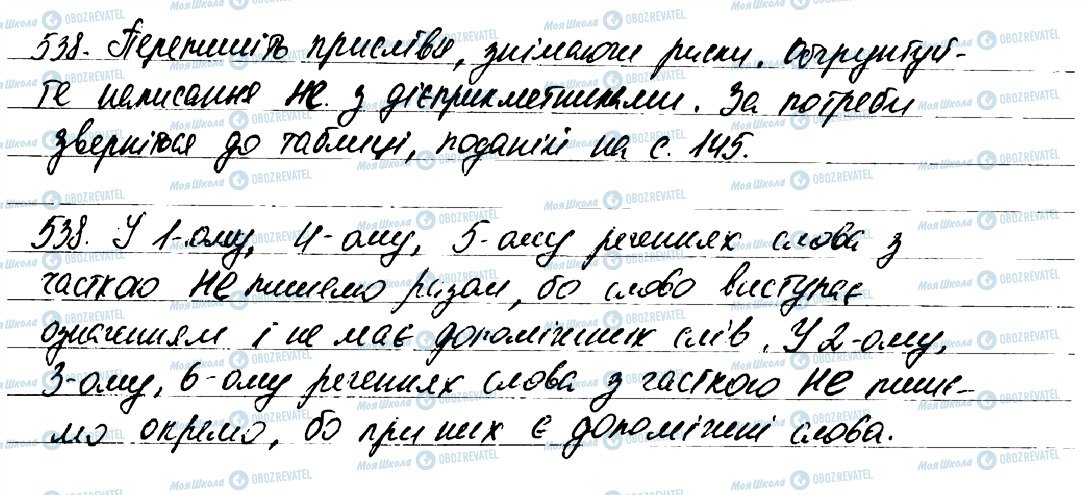 538. Перепишіть прислівя, знімаючи риски. Обґрунтуй-
те написання не з дієприкметниками. За потреби
зверніться до таблиці, поданій на с. 145.
538. У 1-ому, 4-ому, 5-ому реченнях слова з
часткою не пишемо разом, бо слово виступає
означенням і не має допоміжних слів. У 2-ому,
3-ому, 6-ому реченнях слова з часткою не пише-
мо окремо, бо при них є допоміжні слова.